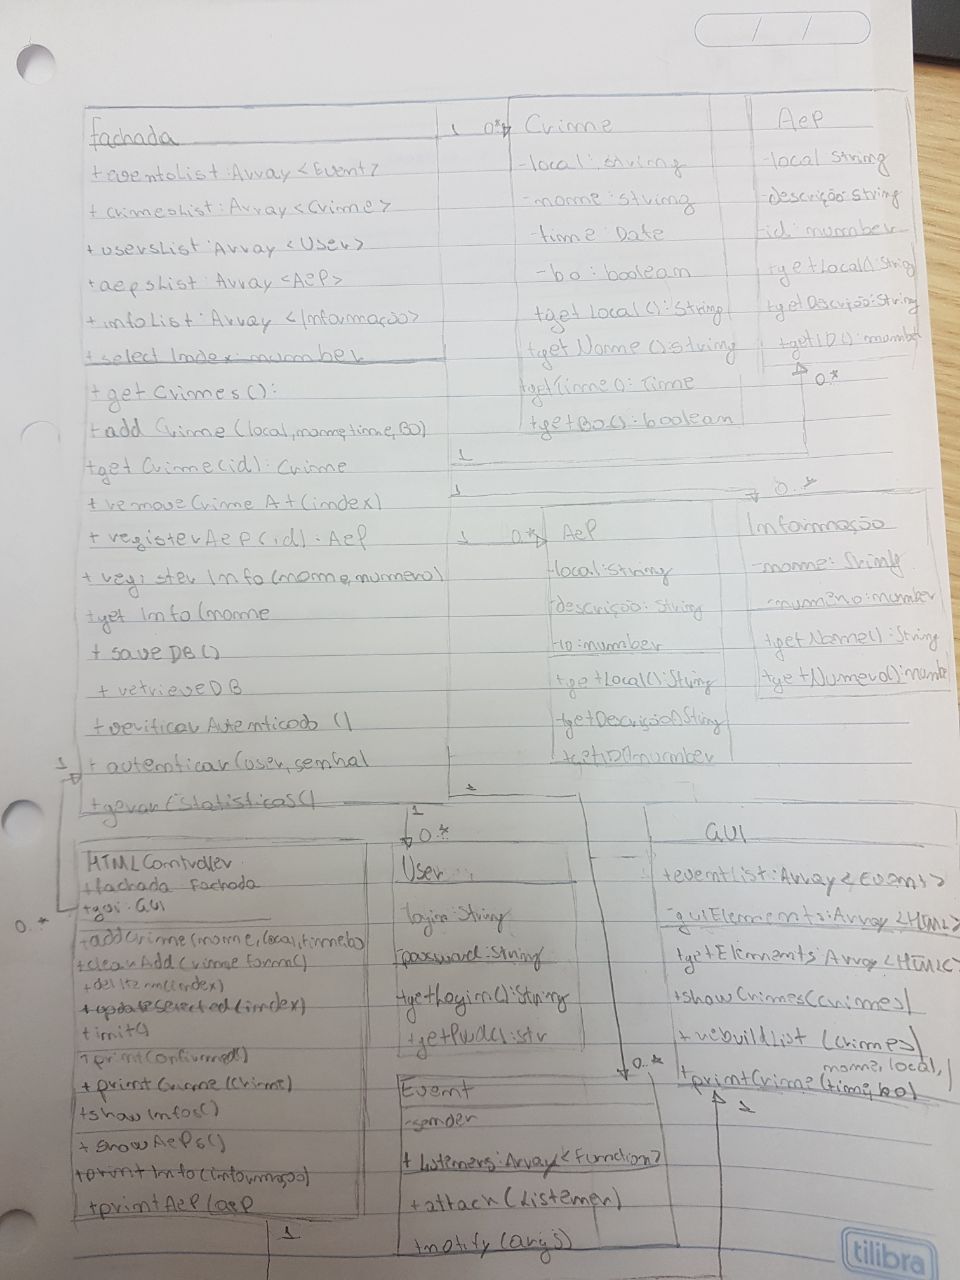 fachada
+ eventoList : Array <Event>
+ crimesList : Array <Crime>
+ usersList : Array <User>
+ aepsList : Array <AeP>
+ infoList : Array <Informação>
+ select Index : number
+ get Crimes () :
+ add Crime (local, nome, time, BO)
+ get Crime (id) : Crime
+ remove Crime At (index)
+ register AeP (id) : AeP
+ register Info (nome, numero)
+ get Info (nome
+ save DB ()
+ retrieve DB
+ verificar Autenticado ()
+ autenticar (user, senha)
+ gerar Estatisticas ()
1 0..*
Crime
- local : string
- nome : string
- time : Date
- bo : boolean
+ get Local () : String
+ get Nome () : string
+ get Time () : Time
+ get BO () : boolean
AeP
- local String
- descrição : String
- id : number
+ get Local () : String
+ get Descrição : String
+ get ID () : number
0..*
1
1 0..*
1 0..*
AeP
- local : String
- descrição : String
- id : number
+ get Local () : String
+ get Descrição () String
+ get ID () number
Informação
- nome : String
- numero : number
+ get Nome () : String
+ get Numero () : numbe
1
0..*
1
1
0..*
HTML Controller
+ fachada Fachada
+ gui : GUI
+ add Crime (nome, local, time, bo)
+ clean Add Crime Form ()
+ del Item (index)
+ update Selected (index)
+ init ()
+ print Confirmed ()
+ print Crime (Crime)
+ show Infos ()
+ show AePs ()
+ print Info (informação)
+ print AeP (aeP
1
User
- login : String
- password : String
+ get Login () : String
+ get Pwd () : str
0..*
Event
- sender
+ Listeners : Array <Function>
+ attach (Listener)
+ notify (args)
GUI
+ event List : Array <Event>
- gui Elements : Array <HTML>
+ get Elements : Array <HTML>
+ show Crimes (crimes)
+ rebuild List (crimes)
+ print Crime (nome, local, time, bo)
1
tilibra